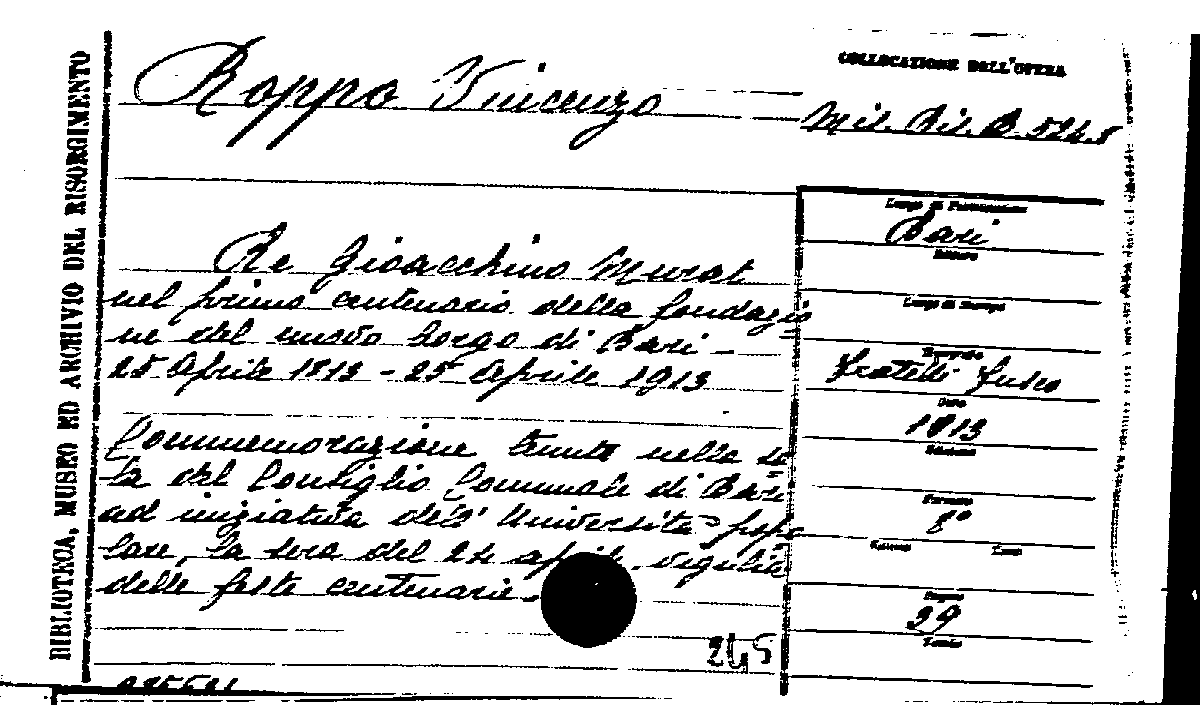 BIBLIOTECA, MUSEO ED ARCHIVIO DEL RISORGIMENTO
Roppo Vincenzo
COLLOCAZIONE DELL'OPERA
Mil. Bil. B. 524.5
Re Gioacchino Murat
nel primo centenario della fondazio
ne del nuovo borgo di Bari -
25 Aprile 1813 - 25 Aprile 1913
Commemorazione tenuta nella sa
la del Consiglio Comunale di Bari
ad iniziativa dell' Università popo
lare, la sera del 24 aprile, vigilia
delle feste centenarie.
245
Luogo di Pubblicazione
Bari
Editore
Luogo di Stampa
Fratelli Fusco
Data
1913
Edizione
Formato
8°
Pagine
39